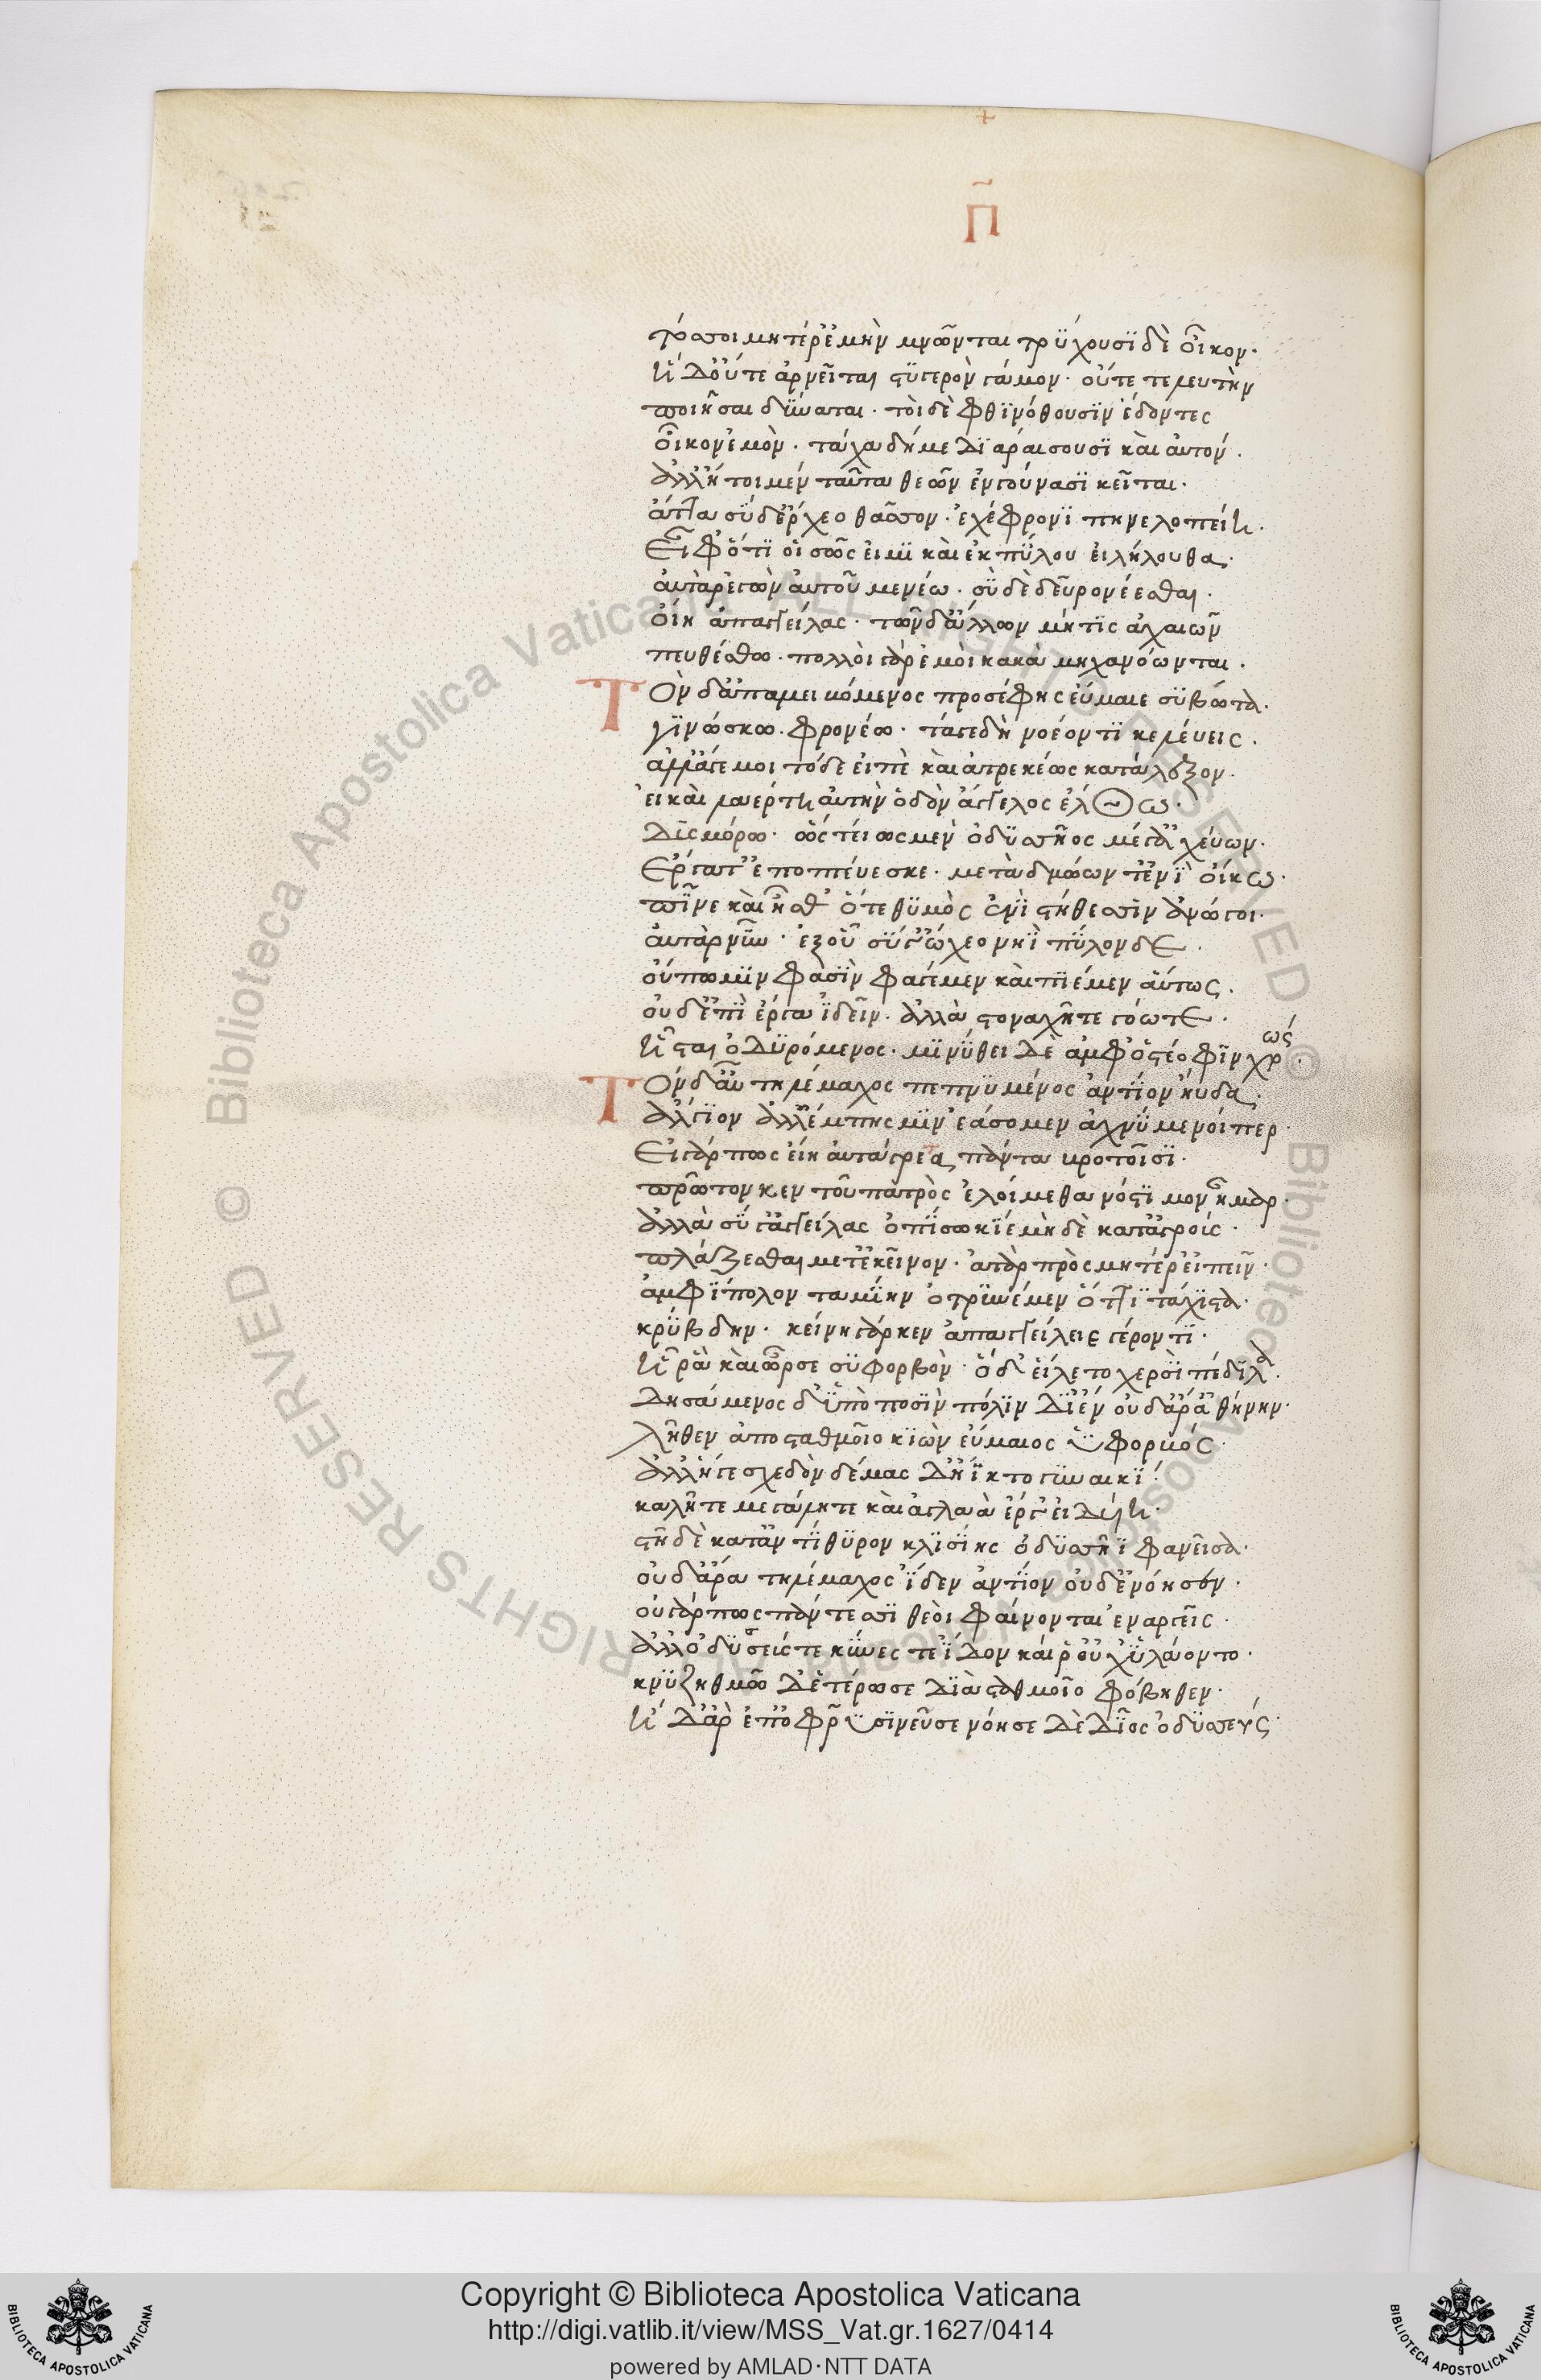 +
Π̃
τόσσοι μητέρ ἐμὴν μνῶνται τρύχουσι δὲ οἶκον·
ἡ δ οὔτε ἀρνεῖται στυγερὸν γάμον· οὔτε τελευτὴν
ποιῆσαι δύναται· τοὶ δὲ φθινύθουσιν ἔδοντες
οἶκον ἐμὸν· τάχα δή με διαρραίσουσι καὶ αὐτόν·
ἀλλ ἤτοι μὲν ταῦτα θεῶν ἐν γούνασι κεῖται·
ἄττα σὺ δ ἔρχεο θᾶσσον· ἐχέφρονι πηνελοπείη·
εἴφ ὅτι οἱ σῶς εἰμι καὶ ἐκ πύλου εἰλήλουθα·
αὐτὰρ ἐγὼν αὐτοῦ μενέω· σὺ δὲ δεῦρο νέεσθαι·
οἴη ἀπαγγείλας· τῶν δ ἄλλων μήτις ἀχαιῶν
πευθέσθω· πολλοὶ γὰρ ἐμοὶ κακὰ μηχανόωνται·
Τὸν δ ἀπαμειβόμενος προσέφης εὔμαιε συβῶτα·
γινώσκω· φρονέω· τάγε δὴ νοέοντι κελεύεις·
ἀλλ ἄγε μοι τόδε εἰπὲ καὶ ἀτρεκέως κατάλεξον·
εἰ καὶ λαέρτη αὐτὴν ὁδὸν ἄγγελος ἔλθω·
δυσμόρω· ὅς τείως μὲν ὀδυσσῆος μέγ ἀχεύων·
ἔργα τ ἐποπτεύεσκε· μετὰ δμώων τ ἐνὶ οἴκω·
πῖνε καὶ ἦσθ ὅτε θυμὸς ἐνὶ στήθεσσιν ἀνώγοι·
αὐτὰρ νῦν· ἐξ οὗ σύ γ ὤχεο νηῒ πύλονδε·
οὔπω μίν φασὶν φαγέμεν καὶ πιέμεν αὔτως·
οὐδ ἐπὶ ἔργα ἰδεῖν· ἀλλὰ στοναχῆ τε γόω τε·
ἧσται ὀδυρόμενος· μινύθει δὲ ἀμφ ὀστεόφιν χρώς·
Τὸν δ αὖ τηλέμαχος πεπνυμένος ἀντίον ηὔδα·
ἄλγιον ἀλλ ἔμπης μιν ἐάσομεν ἀχνύμενόι περ·
εἰ γάρ πως εἴη αὐτάγρετα πάντα βροτοῖσι·
πρῶτον κεν τοῦ πατρὸς ἑλοίμεθα νόστιμον ἦμαρ·
ἀλλὰ σύ γ ἀγγείλας ὀπίσω κίε μὴ δὲ κατ ἀγροὺς·
πλάζεσθαι μετ ἐκεῖνον· ἀτὰρ πρὸς μητέρ εἰπεῖν·
ἀμφίπολον ταμίην ὀτρυνέμεν ὅττι τάχιστα·
κρύβδην· κείνη γάρ κεν ἀπαγγείλειε γέροντι·
ἦ ῥα καὶ ὦρσε συφορβὸν· ὁ δ εἵλετο χερσὶ πέδιλα·
δησάμενος δ ὑπὸ ποσὶν πόλιν δ ἴεν οὐδ ἄρ ἀθήνην·
λῆθεν ἀπὸ σταθμοῖο κιὼν εὔμαιος ὑφορβός·
ἀλλ ἥ γε σχεδὸν δέμας δ ἤϊκτο γυναικί·
καλῆ τε μεγάλη τε καὶ ἀγλαὰ ἔργ εἰδυίη·
στῆ δὲ κατ ἀντίθυρον κλισίης ὀδυσσῆϊ φανεῖσα·
οὐδ ἄρα τηλέμαχος ἴδεν ἀντίον οὐδ ἐνόησεν·
οὐ γάρ πως πάντεσσι θεοὶ φαίνονται ἐναργεῖς·
ἀλλ ὀδυσεύς τε κύνες τε ἴδον καί ῥ οὐχ ὑλάοντο·
κνυζηθμῶ δ ἑτέρωσε διὰ σταθμοῖο φόβηθεν·
ἡ δ ἄρ ἐπ ὀφρύσι νεῦσε νόησε δὲ δῖος ὀδυσσεύς·
Copyright © Biblioteca Apostolica Vaticana
http://digi.vatlib.it/view/MSS_Vat.gr.1627/0414
powered by AMLAD·NTT DATA